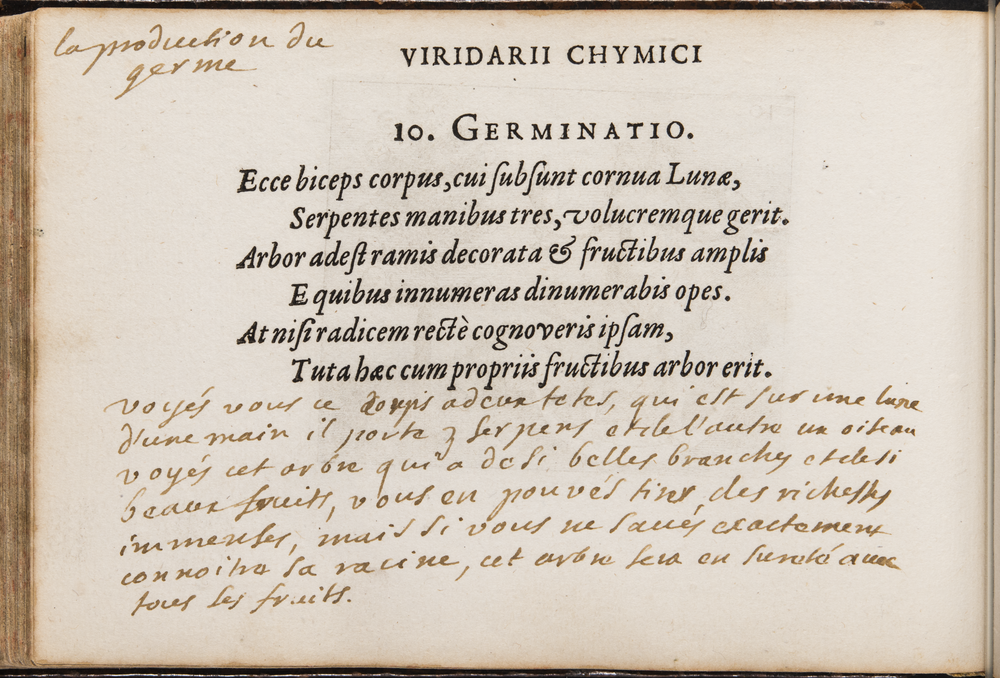 la production du
germe
VIRIDARII CHYMICI
10. GERMINATIO.
Ecce biceps corpus, cui ſubſunt cornua Lunæ,
Serpentes manibus tres, volucremque gerit.
Arbor adeſt ramis decorata & fructibus amplis
E quibus innumeras dinumerabis opes.
At niſi radicem rectè cognoveris ipſam,
Tuta hæc cum propriis fructibus arbor erit.
voyés vous ce corps a deux tetes, qui est sur une lune
d'une main il porte 3 serpens et de l'autre un oiseau
voyés cet arbre qui a de si belles branches et de si
beaux fruits, vous en pouvés tirer des richesses
immenses, mais si vous ne savés exactement
connoitre sa racine, cet arbre sera en sureté avec
tous ses fruits.